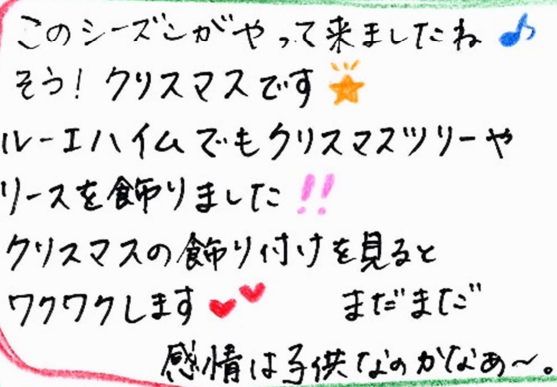 このシーズンがやって来ましたね♪
そう！クリスマスです
ルーエハイムでもクリスマスツリーや
リースを飾りました!!
クリスマスの飾り付けを見ると
ワクワクします まだまだ
感情は子供なのかなぁ〜。